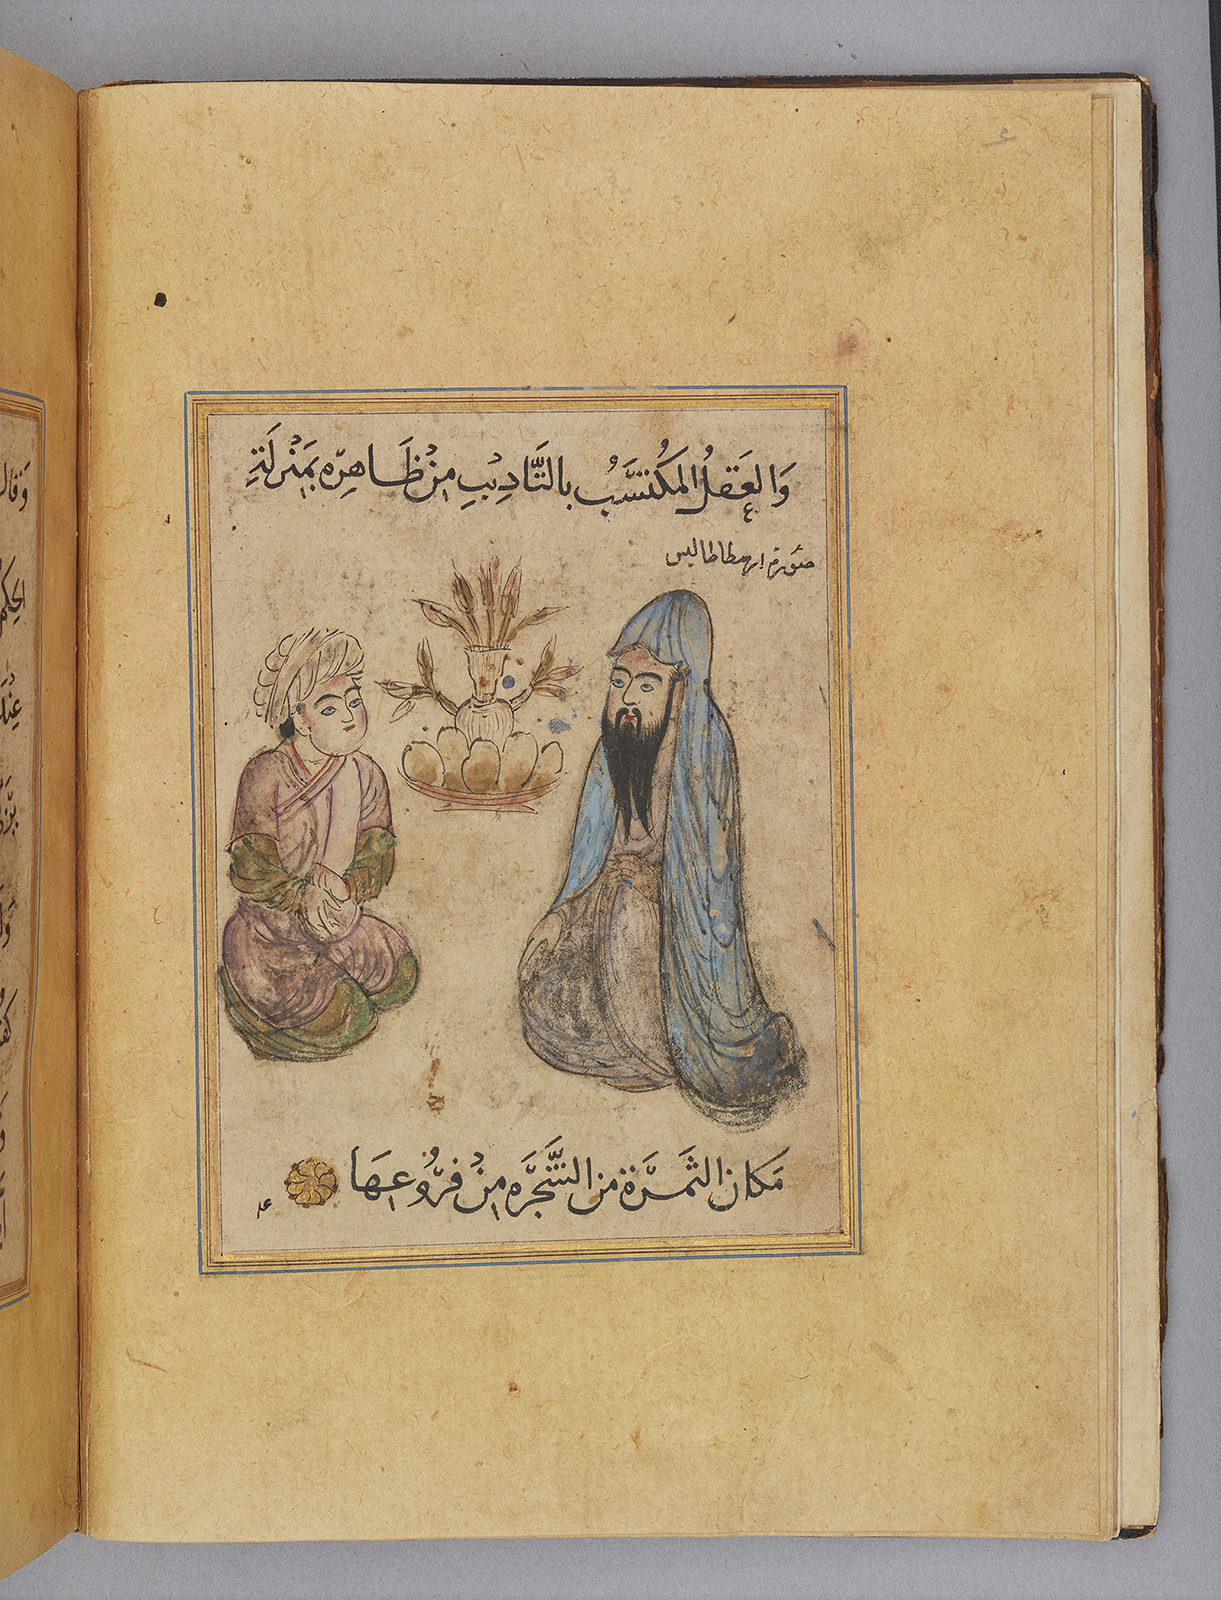 وَالعَقلُ المُكتَسَبُ بالتَّادِيبِ مِنْ ظَاهِرِه بِمَنْزلَةِ
صورة ارسطاطاليس
مَكان الثَمَرَة من الشَّجَرَه مِنْ فُرُوعِهَا